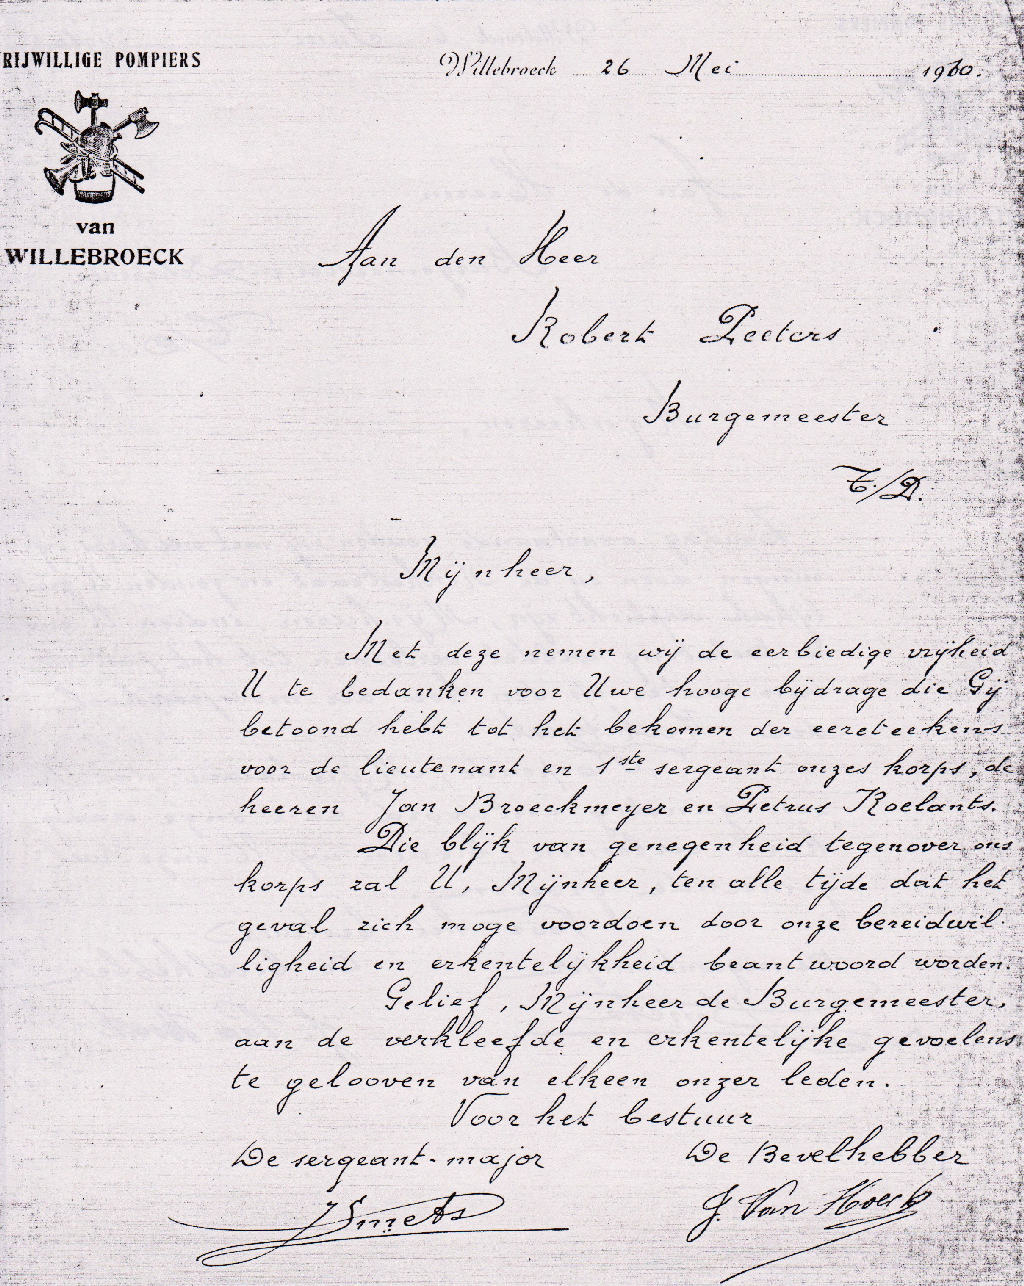 RIJWILLIGE POMPIERS
van
WILLEBROECK
Willebroeck 26 Mei 1910.
Aan den Heer
Robert Peeters
Burgemeester
T./D.
Mijnheer,
Met deze nemen wij de eerbiedige vrijheid
U te bedanken voor Uwe hooge bijdrage die Gij
betoond hebt tot het bekomen der eereteekens
voor de lieutenant en 1ste sergeant onzes korps, de
heeren Jan Broeckmeyer en Petrus Roelants.
Die blijk van genegenheid tegenover ons
korps zal U, Mijnheer, ten alle tijde dat het
geval zich moge voordoen door onze bereidwil-
ligheid en erkentelijkheid beantwoord worden.
Gelief, Mijnheer de Burgemeester,
aan de verkleefde en erkentelijke gevoelens
te gelooven van elkeen onzer leden.
Voor het bestuur
De sergeant-major De Bevelhebber
J Smets J. Van Hoeck